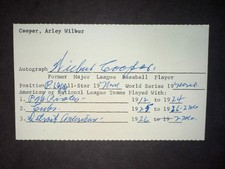 Cooper, Arley Wilbur
Autograph Wilbur Cooper
Former Major League Baseball Player
Position All-Star 19 None World Series 19
American or National League Teams Played With:
1. Pgh Pirates 1912 to 1924
2. Cubs 1925 to
3. Detroit 1926 to